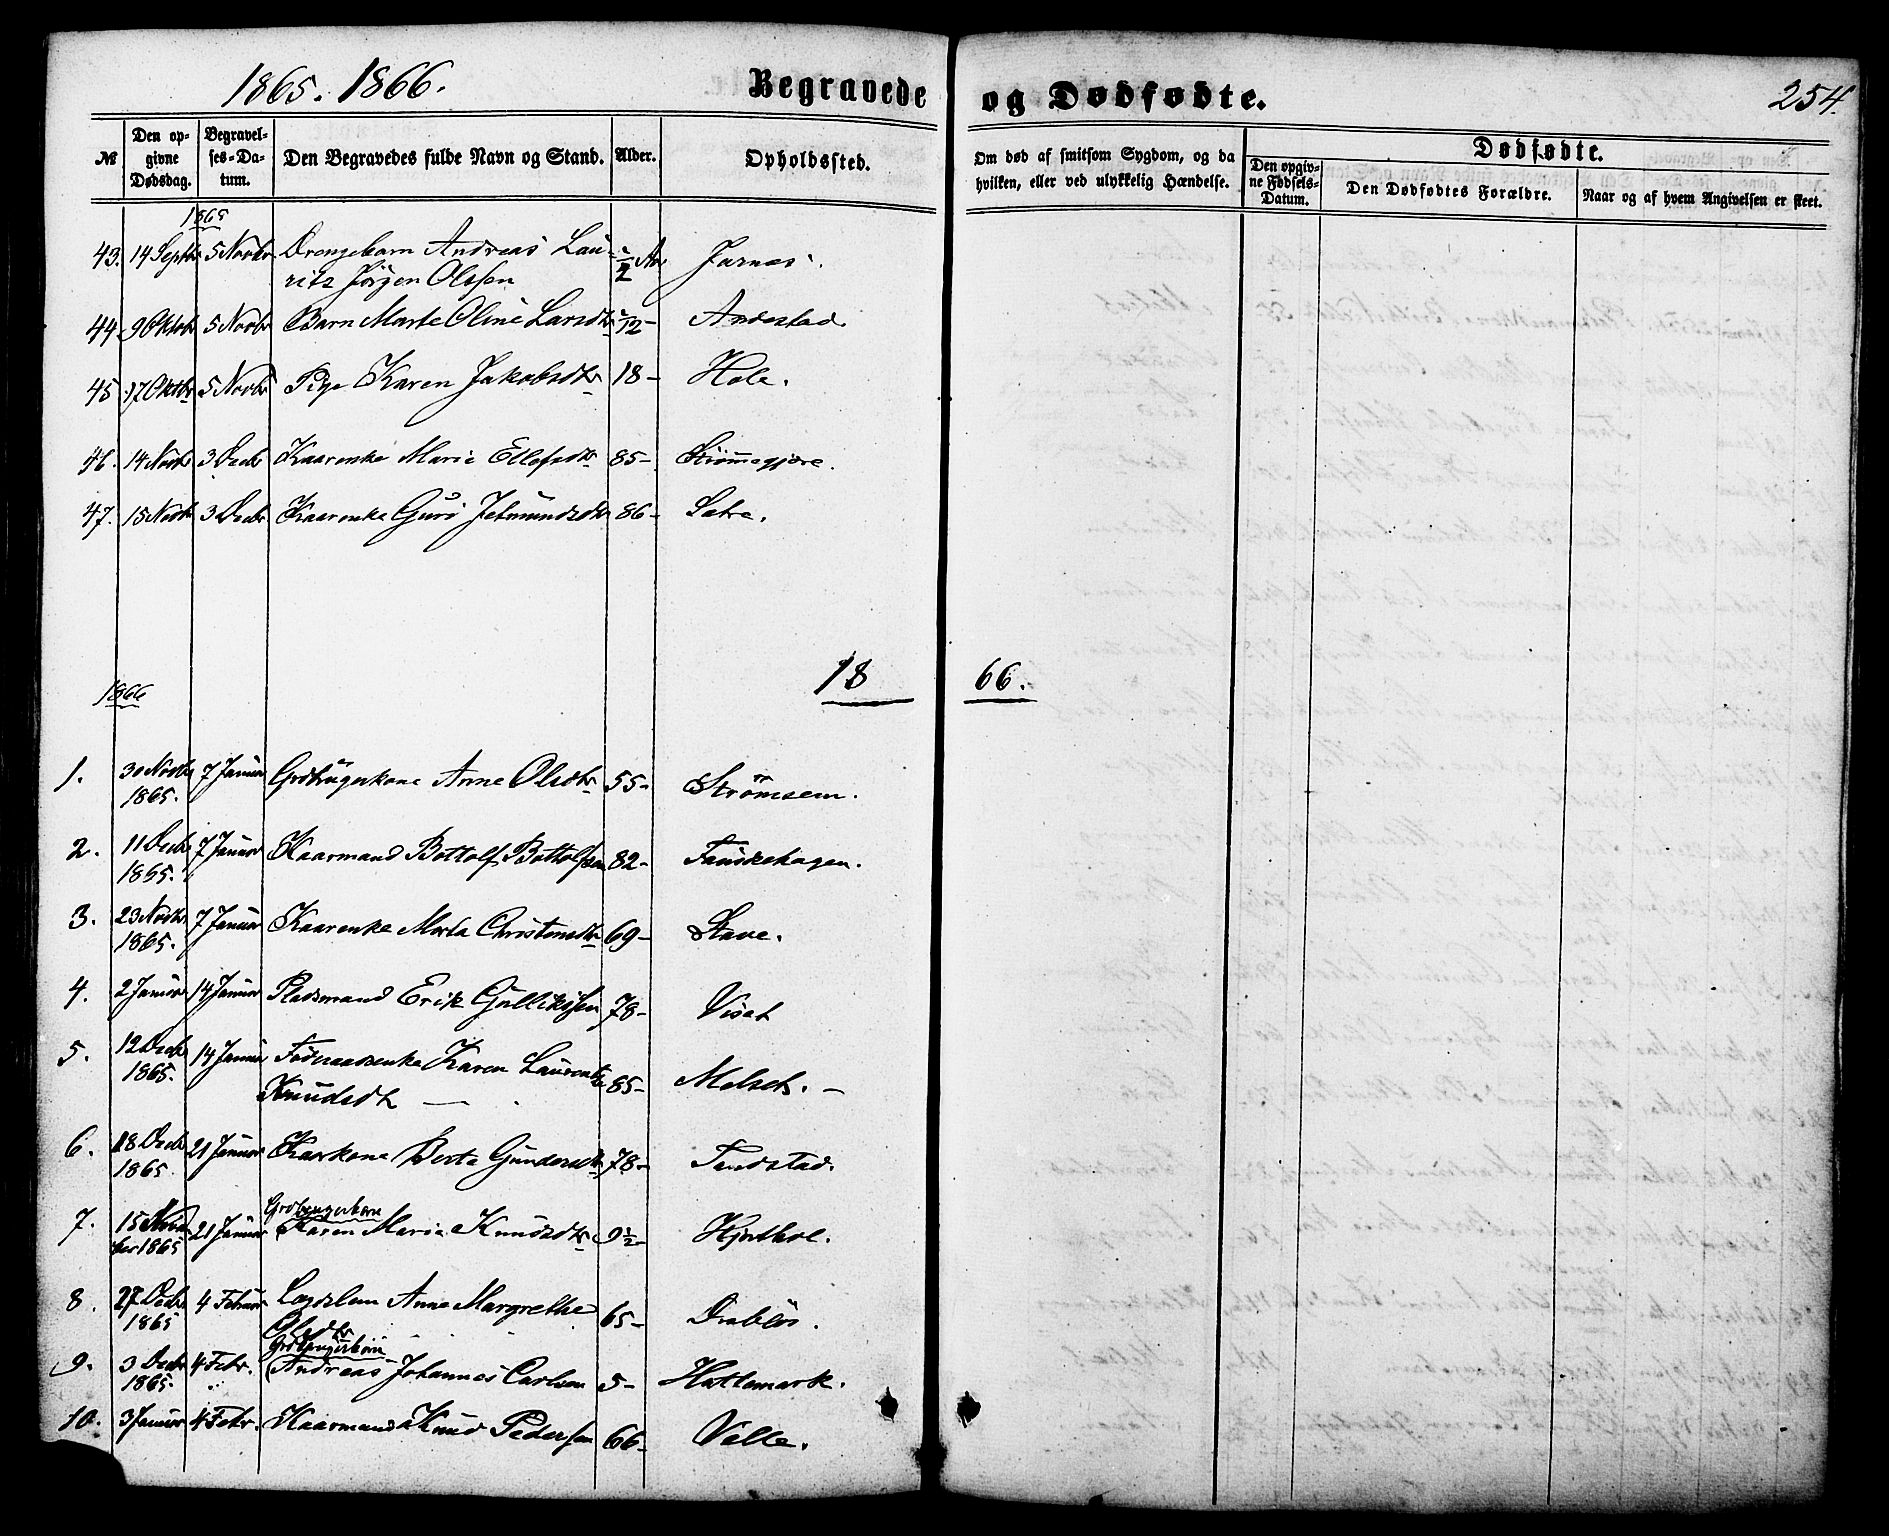 1865. 1866.
Begravede og Dødfødte.
254.
№
Den opgivne Dødsdag.
Begravelses-Datum.
Den Begravedes fulde Navn og Stand.
Alder.
Opholdssted.
Om død af smitsom Sygdom, og da hvilken, eller ved ulykkelig Hændelse.
Dødfødte.
Den opgivne Fødsels-Datum.
Den Dødfødtes Forældre.
Naar og af hvem Angivelsen er skeet.
1865
43. 14 Septbr 5 Novbr Drengebarn Andreas Lau-
rits Jørgen Olssen
44. 9 Oktobr 5 Novbr Barn Marte Oline Larsdtr
45 17 Oktbr 5 Novbr Pige Karen Jakobsdtr 18 - Hole.
46. 14 Novbr 3 Decbr Kaarenke Marie Ellefsdtr 85 -
47. 15 Novbr 3 Decbr Kaarenke Guri Jetmundsdtr 86 - Sætre.
1866
1866.
1. 30 Novbr 1865. 7 Januar Grdbrugerkone Anne Olsdtr 55 - Strømsem.
2. 11 Decbr 1865. 7 Januar Kaarmand Bottolf Bottolfsen 82 - Fauskehagen.
3. 23 Novbr 1865. 7 Januar Kaarenke Marta Christensdtr 69 - Stave.
4. 2 Januar 14 Januar Pladsmand Erik Gullikssen 78 - Viset
5. 12 Decbr 1865. 14 Januar Karen Laurentze
Knudsdt 85 - Melset. -
6. 18 Decbr 1865. 21 Januar Kaarkone Berta Gundersdtr 78 - Tandstad.
7. 15 Novem
ber 1865 21 Januar Grdbrugerbarn
Karen Marie Knudsdtr 9½ - Hjorthol.
8. 27 Decbr 1865 4 Februar Lægdslem Anne Margrethe
Olsdtr 65 - Drabløs.
9. 3 Decbr 1865. 4 Febr. Grdbrugerbarn
Andreas Johannes Carlsen 5 - Hattemark.
10. 3 Januar 4 Febr. Kaarmand Knud Pedersen 66 - Velle.